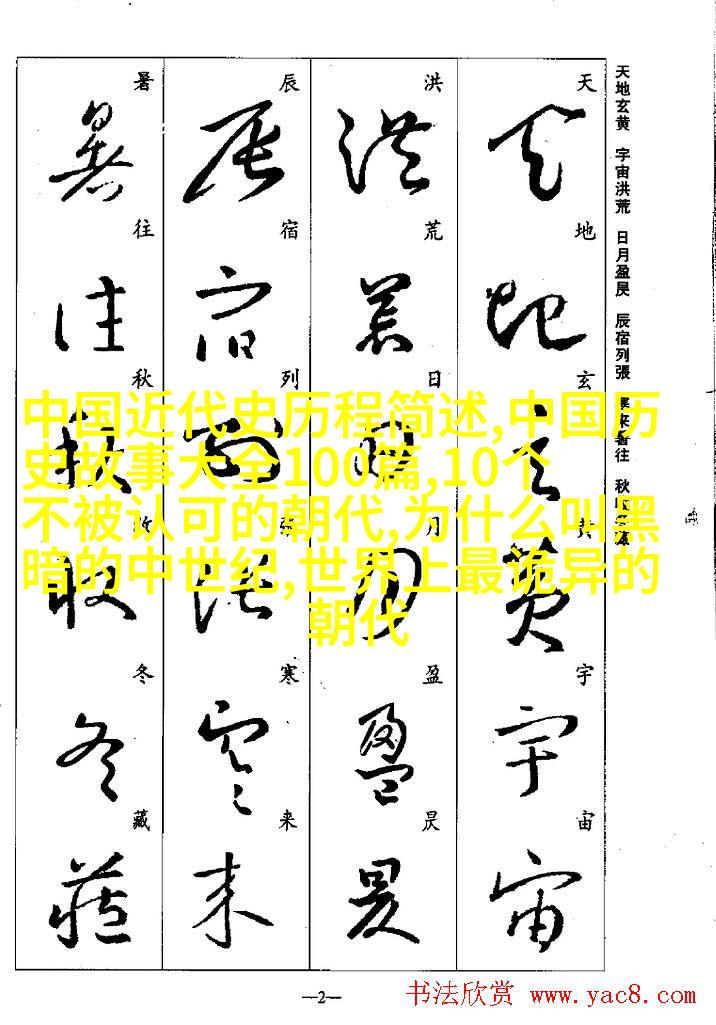 天地玄黄 宇宙洪荒 日月盈昃 辰宿列張 寒来暑往 秋收冬藏
天地玄黄宇宙
洪荒日月盈昃
辰宿列張寒来
暑往秋收冬藏
中国近代史历程简述,中国历
史故事大全100篇,10个
不被认可的朝代,为什么叫黑
暗的中世纪,世界上最诡异的
朝代
—2—
书法欣赏 www.yac8.com